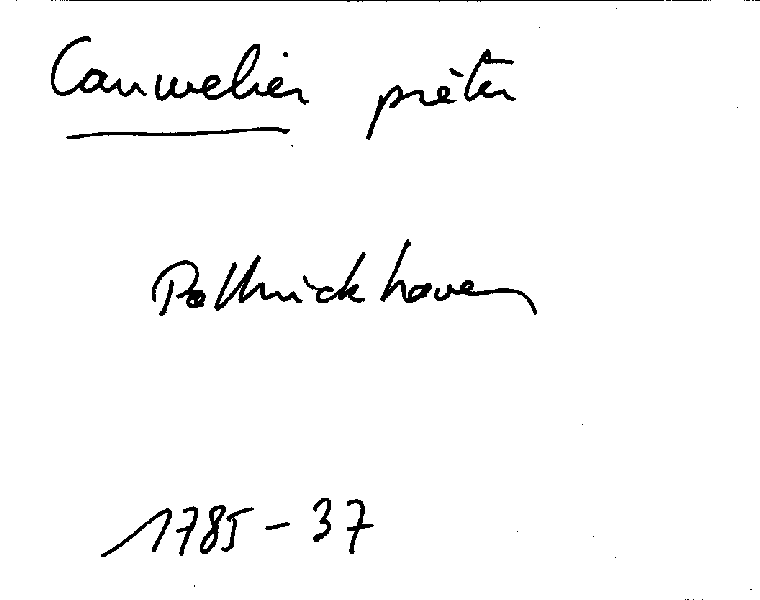 Cauwelier prêter
Pollinckhoven
1785-37